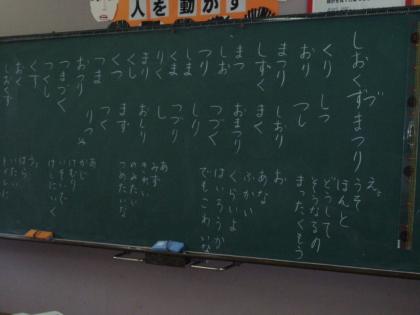 人を動かす
しおくずまつり
づ
くり
おり
まつり
しずく
まつ
しお
つり
しま
くま
りく
まり
くつ
くし
つま
おつり
つまづく
つくし
くず
おく
しおくず
しつ
つし
しおり
まく
おまつり
つく
しり
つづり
し
おしり
ます
つく
りつ
え。
うそ
ほんと
どうして
そうなるの
まったくそう
お
あな
ふかい
くらいよ
はいろうか
でもこわいな
あ
みず
のみたい
つめたいな
あ
かじ
けむり
いそいで
けしにいく
う。
はら